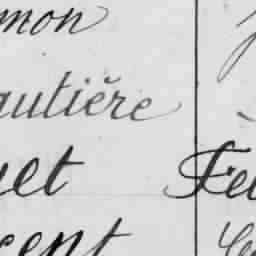 mon
autière
uet Fel
cent